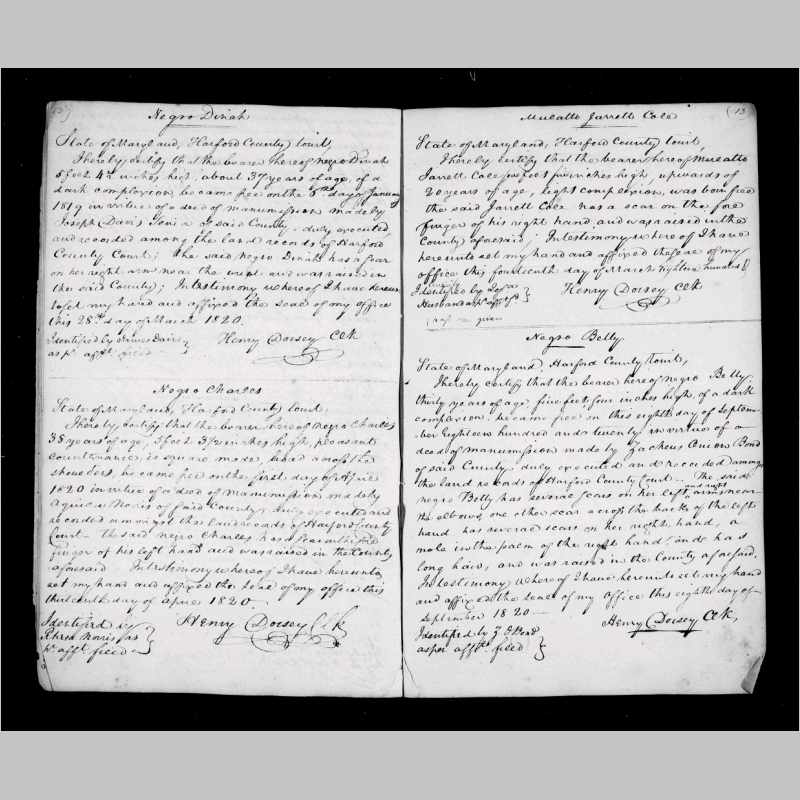 Negro Dinah
State of Maryland, Harford County Court,
I hereby certify that the bearer hereof negro Dinah
5 feet 4½ inches high, about 37 years of age, of a
dark complexion became free on the 8th day of January
1819 in virtue of a deed of manumission made by
Joseph Davis Senr of said County, duly executed
and recorded among the land records of Harford
County Court; the said negro Dinah has a scar
on her right arm near the wrist and was raised in
the said County; In testimony whereof I have hereun
to set my hand and affixed the seal of my office
this 28th day of March 1820.
Identified by Davis
as pr afft. filed
Henry Dorsey Clk
Negro Charles
State of Maryland, Harford County Court,
I hereby certify that the bearer hereof negro Charles
38 years of age, 5 feet 3½ inches high, pleasant
countenance, is square made, broad across the
shoulders, became free on the first day of April
1820 in virtue of a deed of manumission made by
Aquila Norris of said County, duly executed and
recorded amongst the land records of Harford County
Court - the said negro Charles has a scar on the fore
finger of his left hand and was raised in the County
aforesaid In testimony whereof I have hereunto
set my hand and affixed the seal of my office this
thirteenth day of April 1820.
Identified by
Norris as
pr afft. filed
Henry Dorsey Clk
(13
Mulatto Jarrett Cole
State of Maryland, Harford County Court,
I hereby certify that the bearer hereof Mulatto
Jarrett Cole feet inches high, upwards of
20 years of age, light complexion, was born free
the said Jarrett Cole has a scar on the fore
finger of his right hand and was raised in the
County aforesaid; In testimony whereof I have
hereunto set my hand and affixed the seal of my
office this fourteenth day of March Eighteen hundred
Identified by
Husband as pr afft.
Henry Dorsey Clk
Negro Betty.
State of Maryland, Harford County Court,
I hereby certify that the bearer hereof negro Betty
thirty years of age, five feet four inches high, of a dark
complexion became free on this eighth day of Septem-
ber Eighteen hundred and twenty in virtue of a
deed of manumission made by Zacheus Onion Bond
of said County duly executed and recorded among
the land records of Harford County Court - The said
negro Betty has several scars on her left and right arms near
the elbows, one other scar across the back of the left
hand has several scars on her right hand, a
mole in the palm of the right hand, and has
long hair, and was raised in the County aforesaid.
In testimony whereof I have hereunto set my hand
and affixed the seal of my office this eighth day of
September 1820 -
Identified by Z O Bond
as per afft. filed
Henry Dorsey Clk